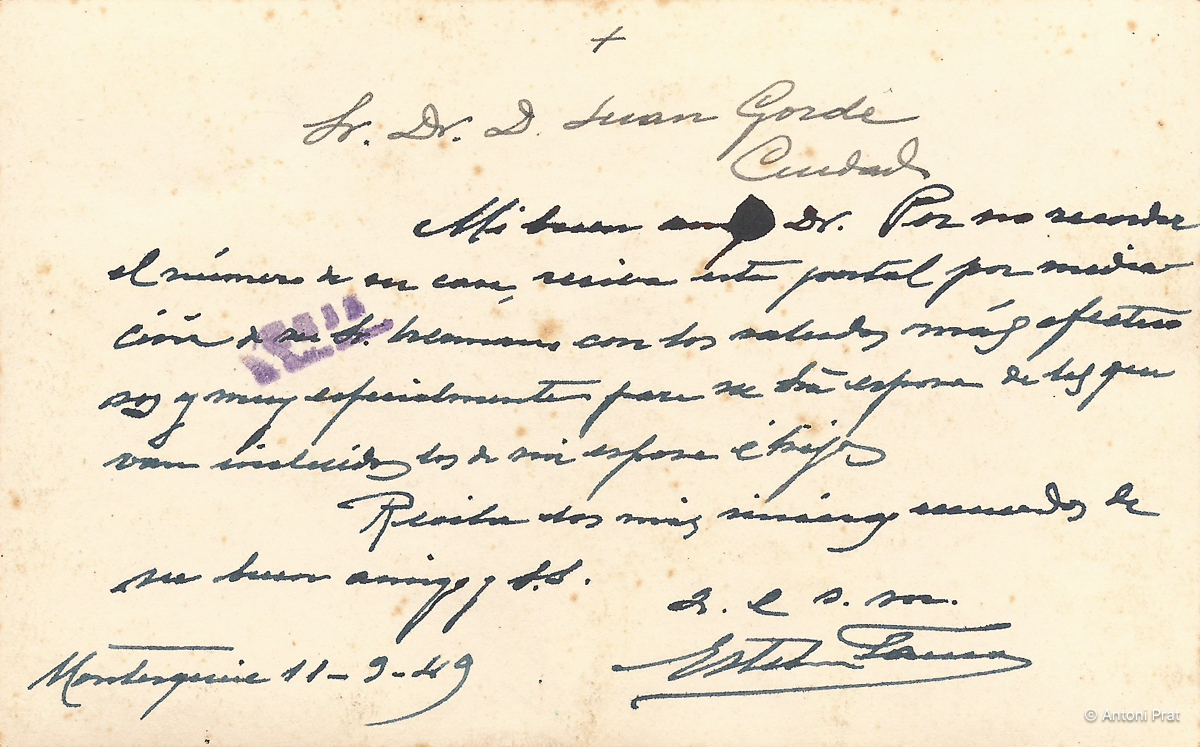 +
Sr. Dr. D. Juan Gordé
Ciudad
Mi buen Dr. Por no recordar
el número de su casa, reciba este postal por media
ción de su Sr. hermano con los saludos más afectuo
sos y muy especialmente para su Sra esposa de los que
van incluidos los de mi esposa é hijos
Reciba los más sinceros recuerdos de
su buen amigo y S.S.
q. e s. m.
Esteban
11-9-49
© Antoni Prat